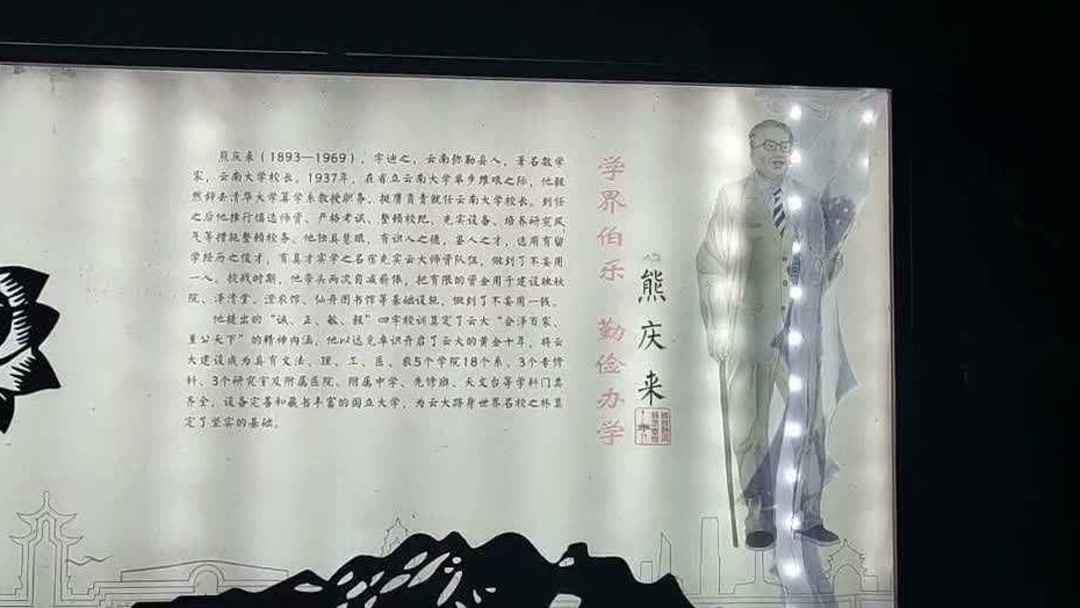 熊庆来（1893—1969），字迪之，云南弥勒县人，著名数学
家，云南大学校长。1937年，在省立云南大学举步维艰之际，他毅
然辞去清华大学算学系教授职务，挺膺负责就任云南大学校长。到任
之后他推行慎选师资、严格考试、整顿校纪、充实设备、培养研究风
气等措施整顿校务。他独具慧眼，有识人之德，鉴人之才，选用有留
学经历之俊才，有真才实学之名宿充实云大师资队伍，做到了不妄用
一人。抗战时期，他带头两次自减薪俸，把有限的资金用于建设映秋
院、泽清堂、澄农馆、仙舟图书馆等基础设施，做到了不妄用一钱。
他提出的“诚、正、敏、毅”四字校训奠定了云大“会泽百家，
至公天下”的精神内涵，他以远见卓识开启了云大的黄金十年，将云
大建设成为具有文法、理、工、医、农5个学院18个系、3个专修
科、3个研究室及附属医院、附属中学、先修班、天文台等学科门类
齐全、设备完善和藏书丰富的国立大学，为云大跻身世界名校之林奠
定了坚实的基础。
学界伯乐 勤俭办学
熊庆来